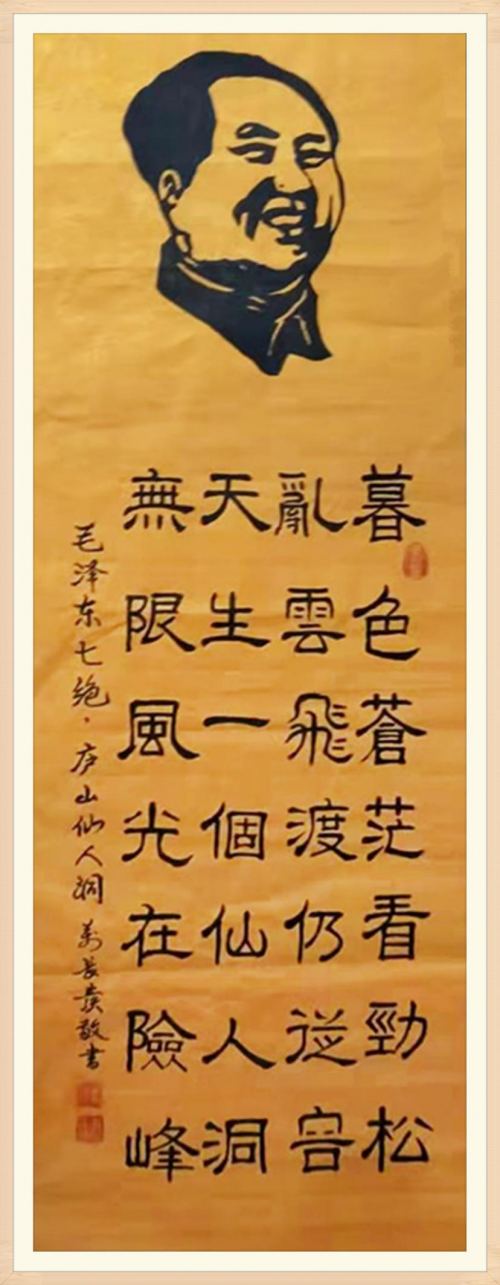 暮色蒼茫看勁松
亂雲飛渡仍従容
天生一個仙人洞
無限風光在險峰
毛泽东七绝·庐山仙人洞 敬書